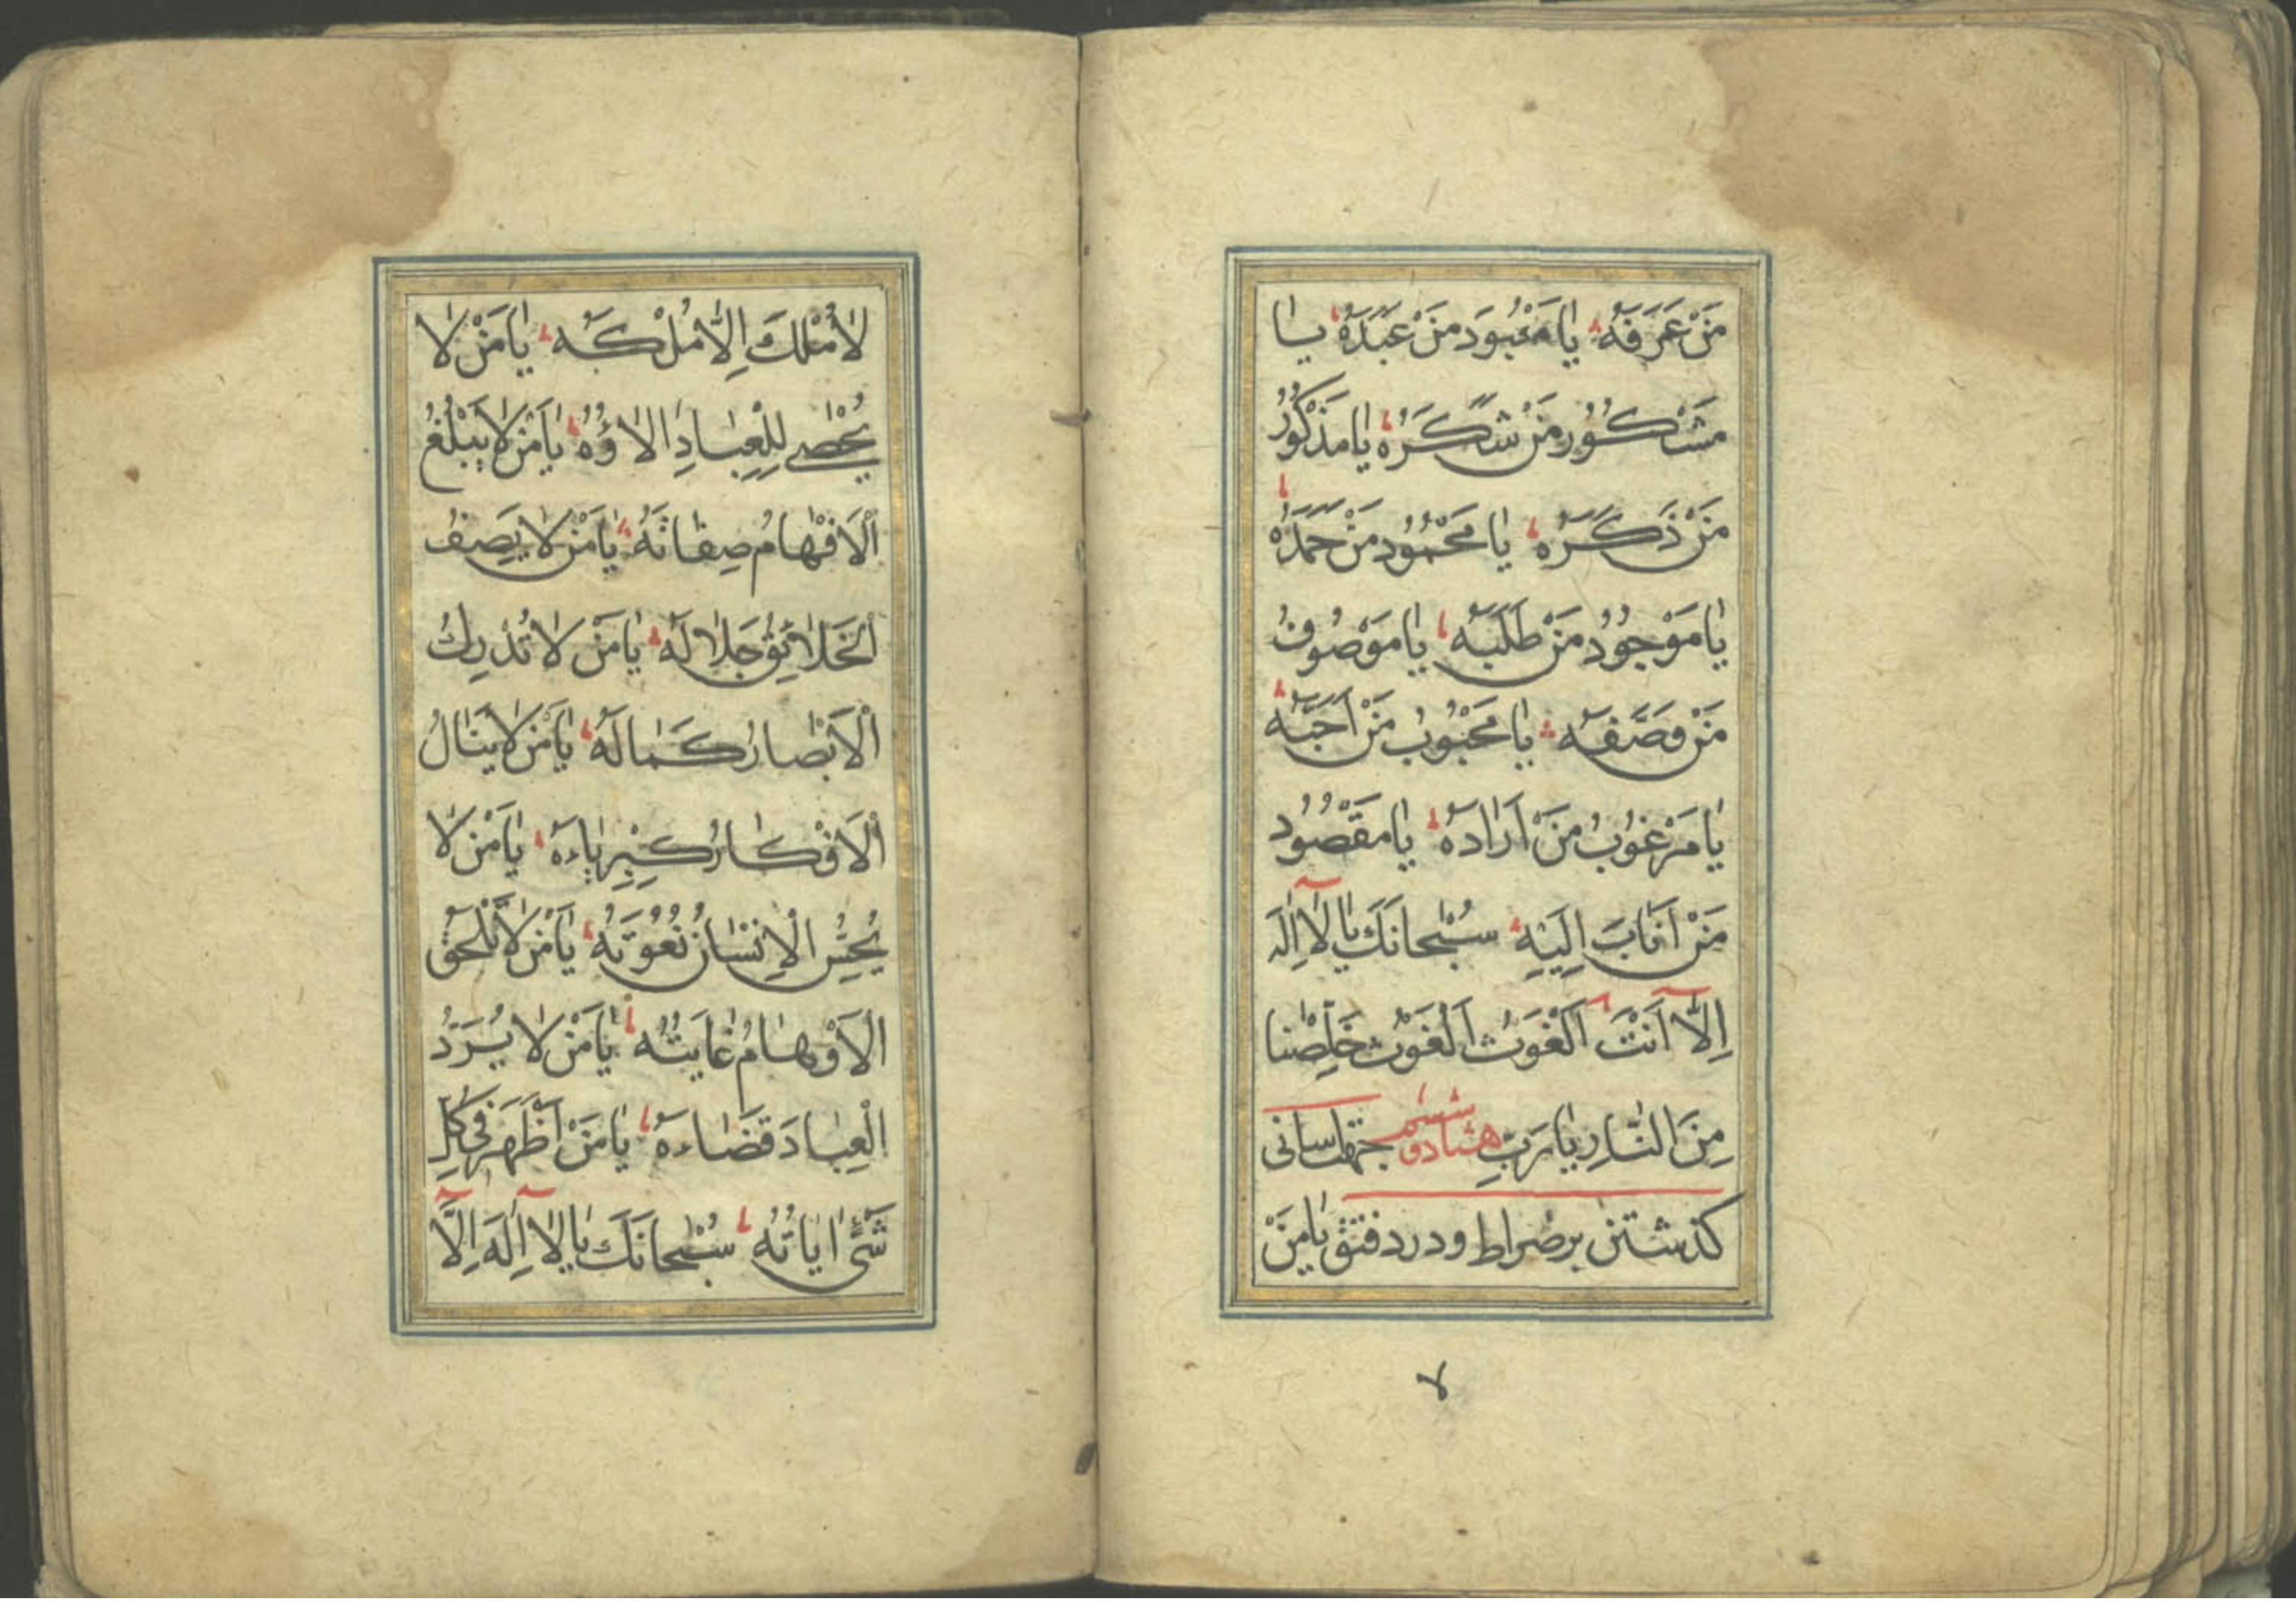 مَنْ عَرَفَهُ يا مَعْبُودَ مَنْ عَبَدَهُ يا
مَشْكُورَ مَنْ شَكَرَهُ يا مَذْكُورَ
مَنْ ذَكَرَهُ يا مَحْمُودَ مَنْ حَمَدَهُ
يا مَوْجُودَ مَنْ طَلَبَهُ يا مَوْصُوفَ
مَنْ وَصَّفَهُ يا مَحْبُوبَ مَنْ اَحَبَّهُ
يا مَرْغُوبَ مَنْ اَرادَهُ يا مَقْصُودَ
مَنْ اَنابَ اِلَيْهِ سُبْحانَكَ يا لا اِلَهَ
اِلّا اَنْتَ اَلْغَوْث اَلْغَوْث خَلِّصْنا
مِنَ النّارِ يا رَبِّ هشتاد و ششم جهة آسانى
كذشتن بر صراط و درد فتق يا مَنْ
لا مُلْكَ اِلّا مُلْكُهُ يا مَنْ لا
يُحْصِي لِلْعِبادِ الاؤُهُ يا مَنْ لا يَبْلُغُ
اَلْاَفْهامُ صِفاتَهُ يا مَنْ لا يَصِفُ
اَلْخَلائِقُ جَلالَهُ يا مَنْ لا تُدْرِكُ
اَلْاَبْصارُ كَمالَهُ يا مَنْ لا يَنالُ
اَلْاَفْكارُ كِبْرِياءَهُ يا مَنْ لا
يُحْسِنُ الْاِنْسانُ نُعُوتَهُ يا مَنْ لا تَلْحَقُ
الْاَوْهامُ غايَتُهُ يا مَنْ لا يُرَدُّ
الْعِبادَ قَضاءَهُ يا مَنْ اَظْهَرَ فى كُلِّ
شَىْءٍ اياتُهُ سُبْحانَكَ يا لا اِلَهَ اِلّا